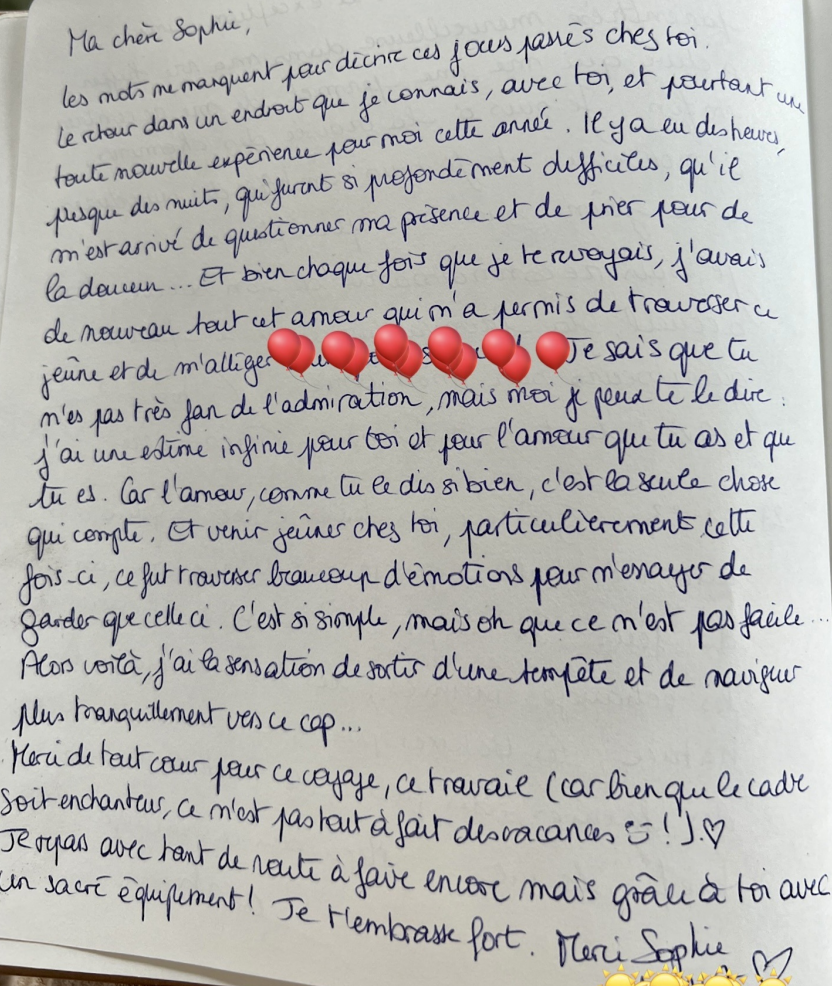 Ma chère Sophie,
Les mots me manquent pour décrire ces jours passés chez toi.
Le retour dans un endroit que je connais, avec toi, et pourtant une
toute nouvelle expérience pour moi cette année. Il y a eu des heures,
presque des nuits, qui furent si profondément difficiles, qu'il
m'est arrivé de questionner ma présence et de prier pour de
la douceur... Et bien chaque fois que je te revoyais, j'avais
de nouveau tout cet amour qui m'a permis de traverser ce
jeûne et de m'alléger Je sais que tu
n'es pas très fan de l'admiration, mais moi je peux te le dire :
j'ai une estime infinie pour toi et pour l'amour que tu as et que
tu es. Car l'amour, comme tu le dis si bien, c'est la seule chose
qui compte. Et venir jeûner chez toi, particulièrement cette
fois-ci, ce fut traverser beaucoup d'émotions pour m'essayer de
garder que celle ci. C'est si simple, mais oh que ce n'est pas facile...
Alors voilà, j'ai la sensation de sortir d'une tempête et de naviguer
plus tranquillement vers ce cap...
Merci de tout cœur pour ce voyage, ce travail (car bien que le cadre
soit enchanteur, ce n'est pas tout à fait des vacances !). ♡
Je repars avec tant de route à faire encore mais grâce à toi avec
un sacré équipement ! Je t'embrasse fort. Merci Sophie ♡